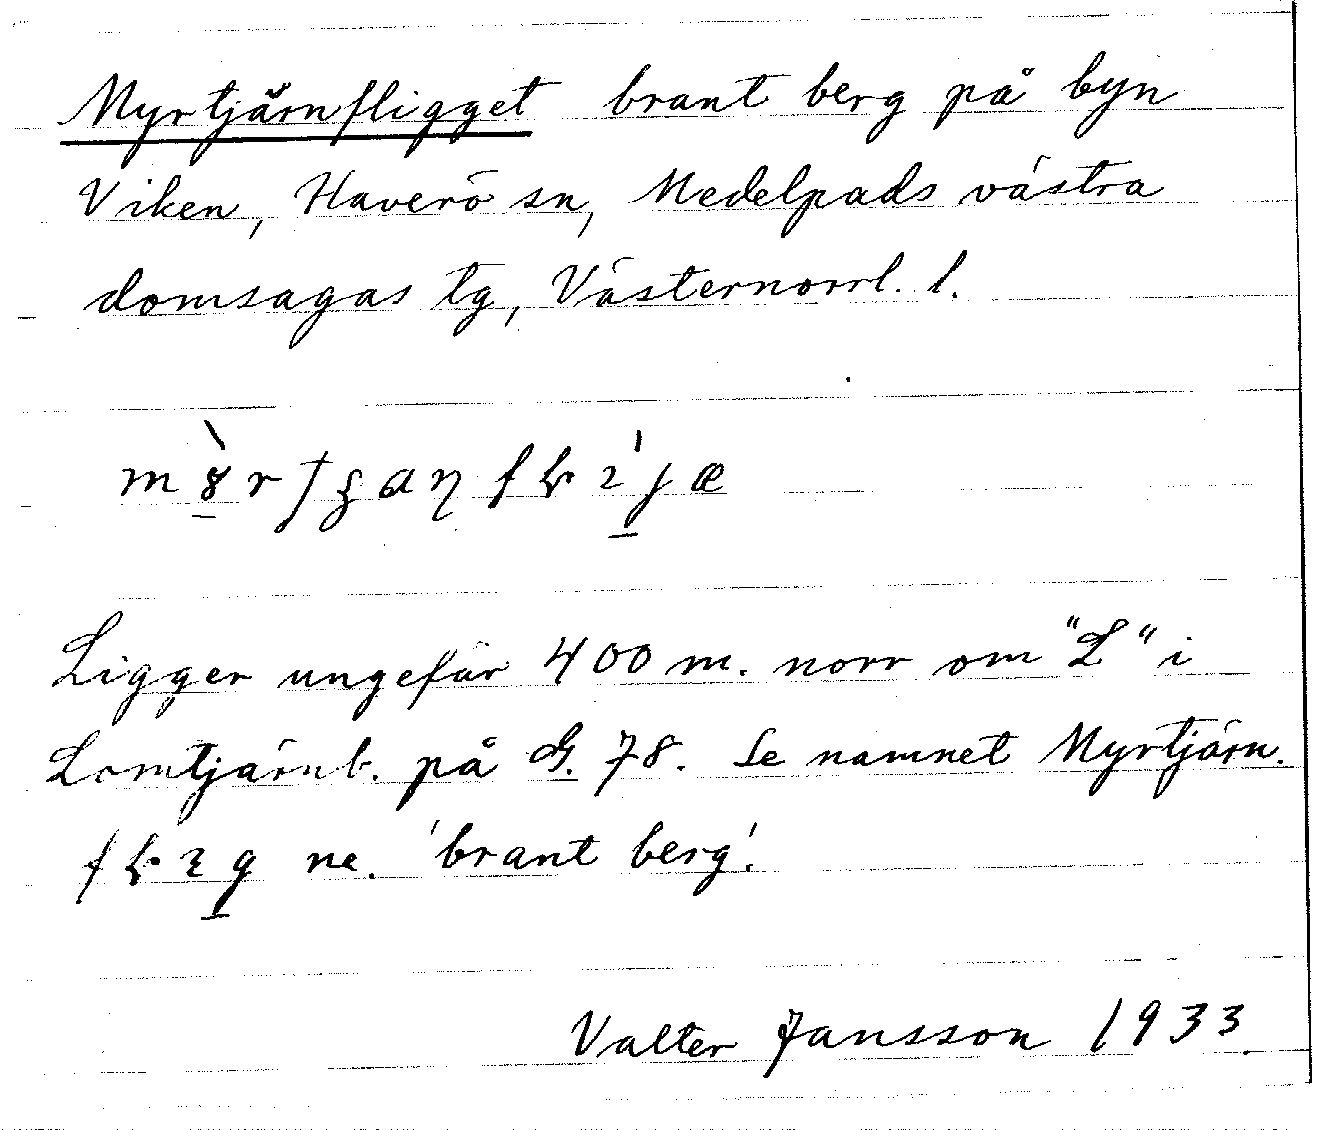 Myrtjärnfligget brant berg på byn
Viken, Haverö sn, Medelpads västra
domsagas tg, Västernorrl. l.
Ligger ungefär 400 m. norr om "L" i
Lomtjärnb. på G. 78. Se namnet Myrtjärn.
ne. 'brant berg'.
Valter Jansson 1933